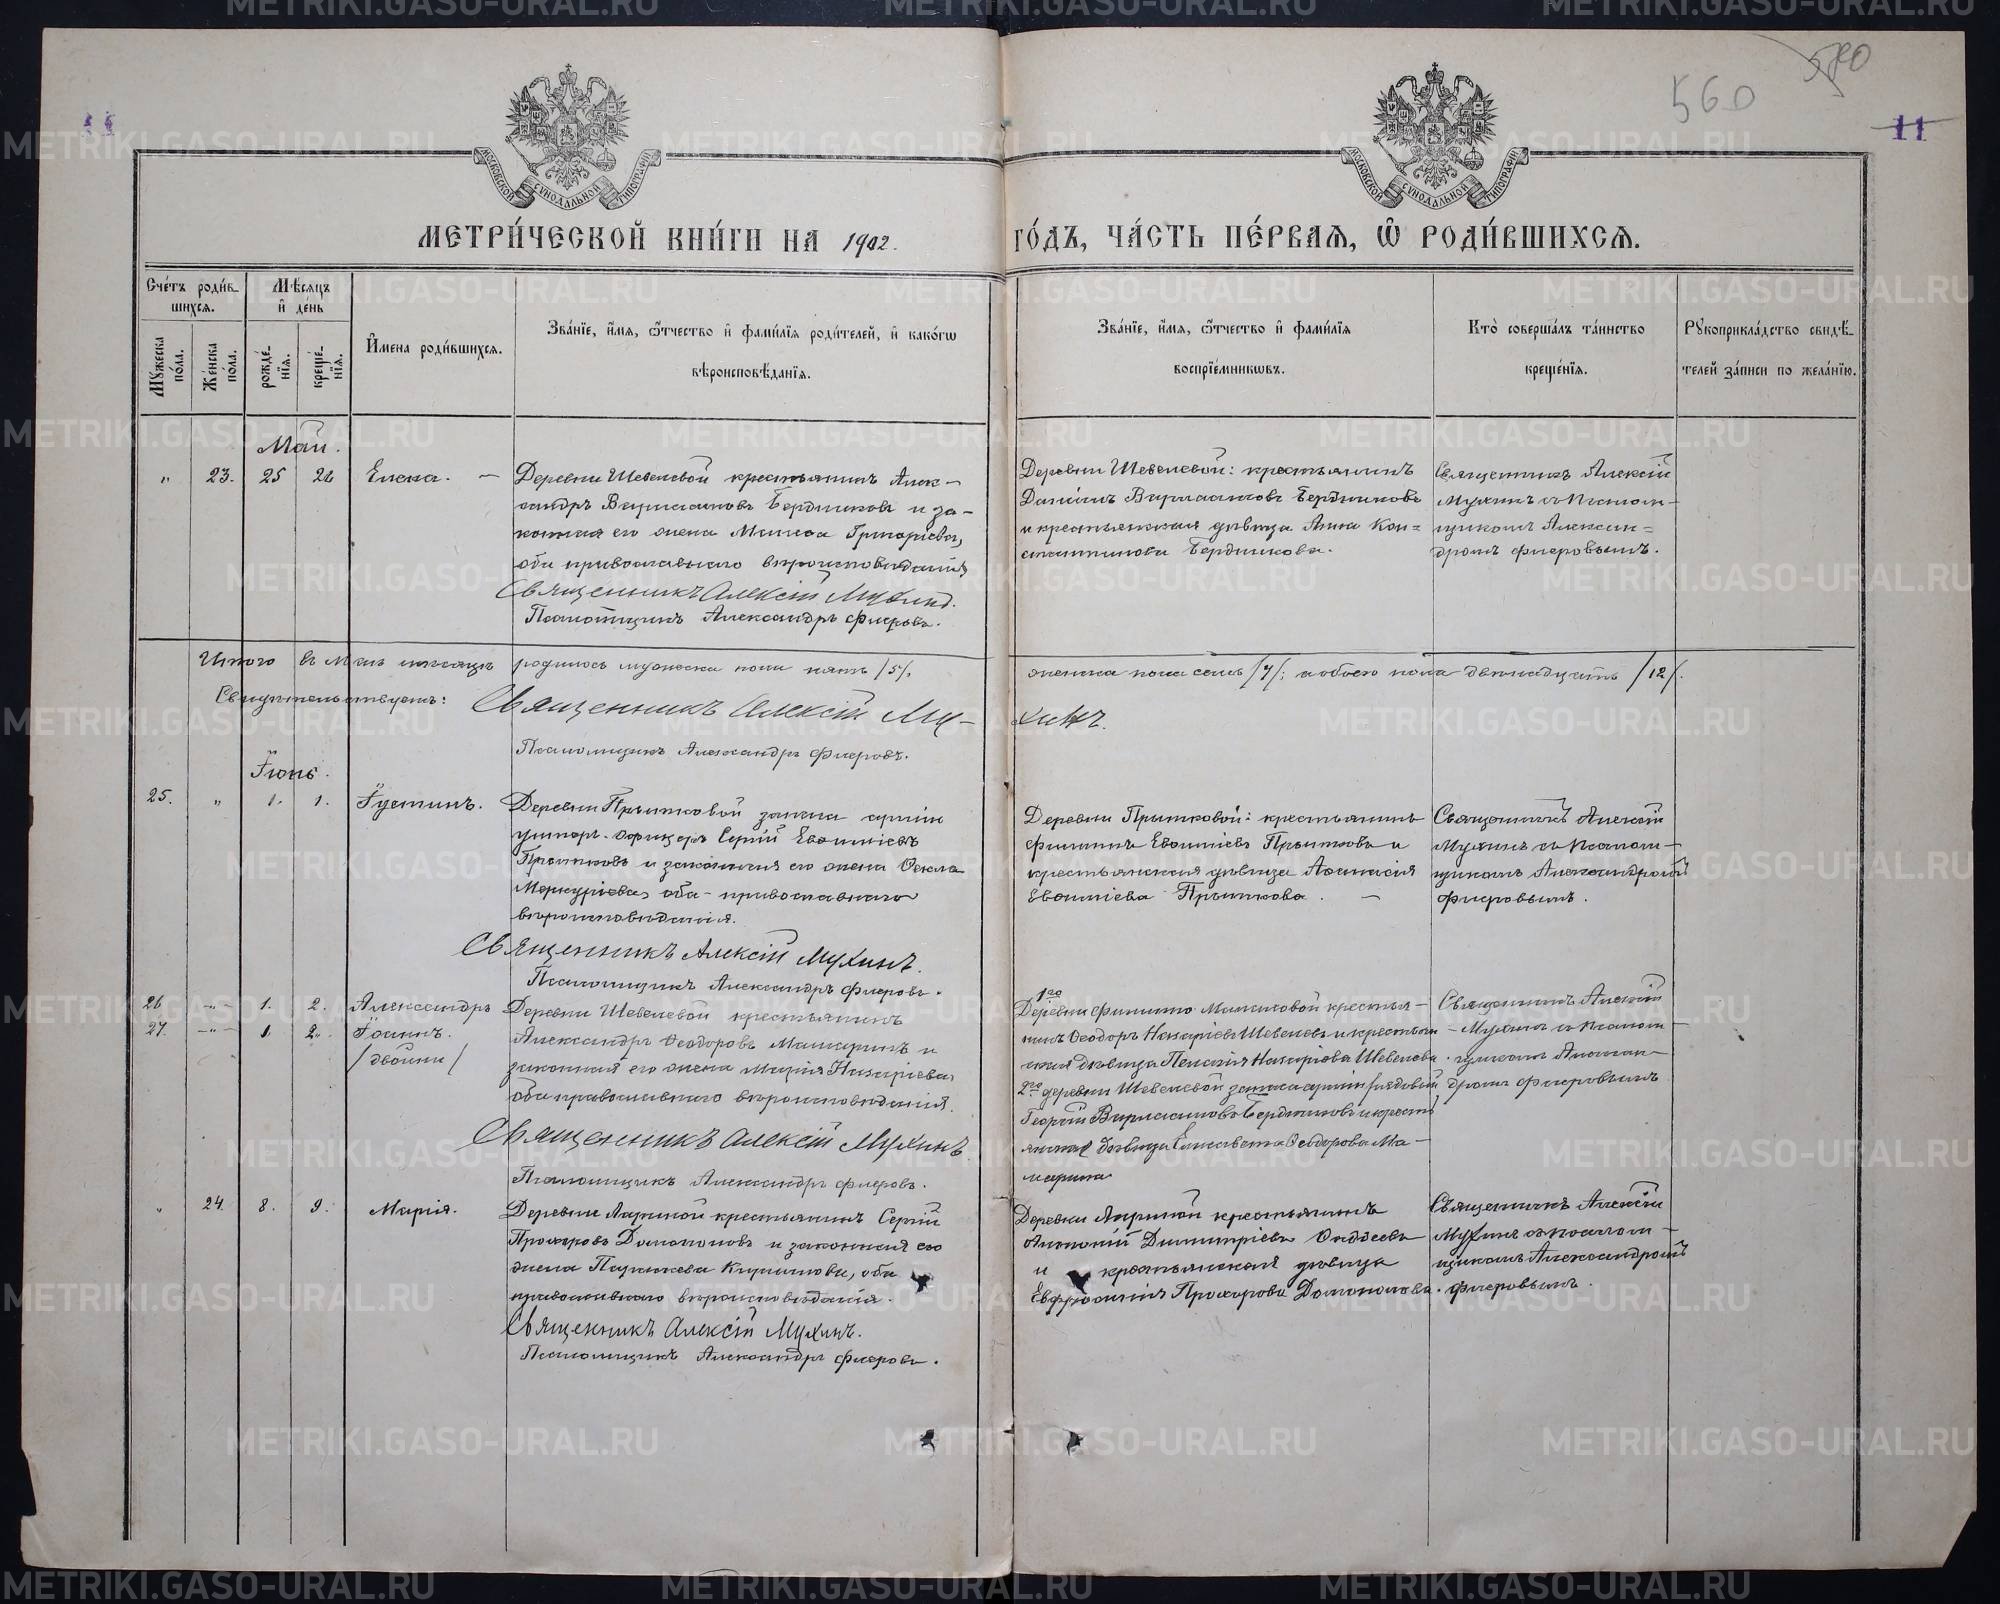 560
580
11
11
МОСКОВСКОЙ СѴНОДАЛЬНОЙ ТИПОГРАФІИ
МОСКОВСКОЙ СѴНОДАЛЬНОЙ ТИПОГРАФІИ
МЕТРИ́ЧЕСКОЙ КНИ́ГИ НА 1902.
ГО́ДЪ, ЧА́СТЬ ПЕ́РВАЯ, Ѡ РОДИ́ВШИХСЯ.
Сче́тъ роди́в-
шихся.
Мѣ́сяцъ
и҆ де́нь
Му́жеска
по́ла.
Же́нска
по́ла.
рожде́-
нїя.
креще́-
нїя.
И҆мена роди́вшихся.
Зва́нїе, и҆́мя, ѻ҆́тчество и҆ фами́лїя роди́телей, и҆ како́гѡ
вѣроисповѣ́данїя.
Зва́нїе, и҆́мя, ѻ҆́тчество и҆ фами́лїя
воспрїе́мникѡвъ.
Кто̀ соверша́лъ та́инство
креще́нїя.
Рꙋкоприкла́дство свидѣ́-
телей за́писи по жела́нїю.
Май.
„ 23. 25 26 Елена. —
Деревни Шевелевой крестьянинъ Алек-
сандръ Варлаамовъ Бердниковъ и за-
конная его жена Григоріева,
оба православнаго вѣроисповѣданія
Священникъ Алексій Мухинъ.
Псаломщикъ Александръ Флеровъ.
Деревни Шевелевой: крестьянинъ
Даніилъ Варлаамовъ Бердниковъ
и крестьянская дѣвица Анна Кон=
стантинова Бердникова.
Священникъ Алексій
Мухинъ съ псалом-
щикомъ Алексан=
дромъ Флеровымъ.
Итого въ Маѣ мѣсяцѣ родилось мужеска пола пять /5/,
женска пола семь /7/; а обоего пола двѣнадцать /12/.
Свидѣтельствуетъ: Священникъ Алексій Му-
хинъ.
Псаломщикъ Александръ Флеровъ.
Іюнь.
25. „ 1. 1. Іустинъ.
Деревни Прытковой запаса арміи
унтеръ-офицеръ Сергій Евѳиміевъ
Прытковъ и законная его жена Ѳекла
Меркуріева, оба православнаго
вѣроисповѣданія.
Священникъ Алексій Мухинъ.
Псаломщикъ Александръ Флеровъ.
Деревни Прытковой: крестьянинъ
Филиппъ Евѳиміевъ Прытковъ и
крестьянская дѣвица Аѳанасія
Евѳиміева Прыткова. —
Священникъ Алексій
Мухинъ съ псалом-
щикомъ Александромъ
Флеровымъ.
26 -„- 1. 2. Александръ
27. -„- 1. 2. Іоаннъ.
/двойни/
Деревни Шевелевой крестьянинъ
Александръ Ѳеодоровъ и
законная его жена Марія Назаріева,
оба православнаго вѣроисповѣданія.
Священникъ Алексій Мухинъ.
Псаломщикъ Александръ Флеровъ.
1го
Деревни крестья-
нинъ Ѳеодоръ Назаріевъ Шевелевъ и крестьян
ская дѣвица Пелагія Назаріева Шевелева.
2го деревни Шевелевой запаса арміи рядовой
Георгій Варлаамовъ Бердниковъ и кресть
янская дѣвица Елисавета Ѳеодорова Ма-
марина
Священникъ Алексій
Мухинъ съ псалом-
щикомъ Алексан-
дромъ Флеровымъ
„ 24. 8. 9. Марія.
Деревни Лариной крестьянинъ Сергій
Прохоровъ и законная его
жена Кириллова, оба
православнаго вѣроисповѣданія.
Священникъ Алексій Мухинъ.
Псаломщикъ Александръ Флеровъ.
Деревни Лариной крестьянинъ
Димитріевъ
и крестьянская дѣвица
Евфросинія Прохорова
Священникъ Алексій
Мухинъ съ псалом-
щикомъ Александромъ
Флеровымъ.
METRIKI.GASO-URAL.RU